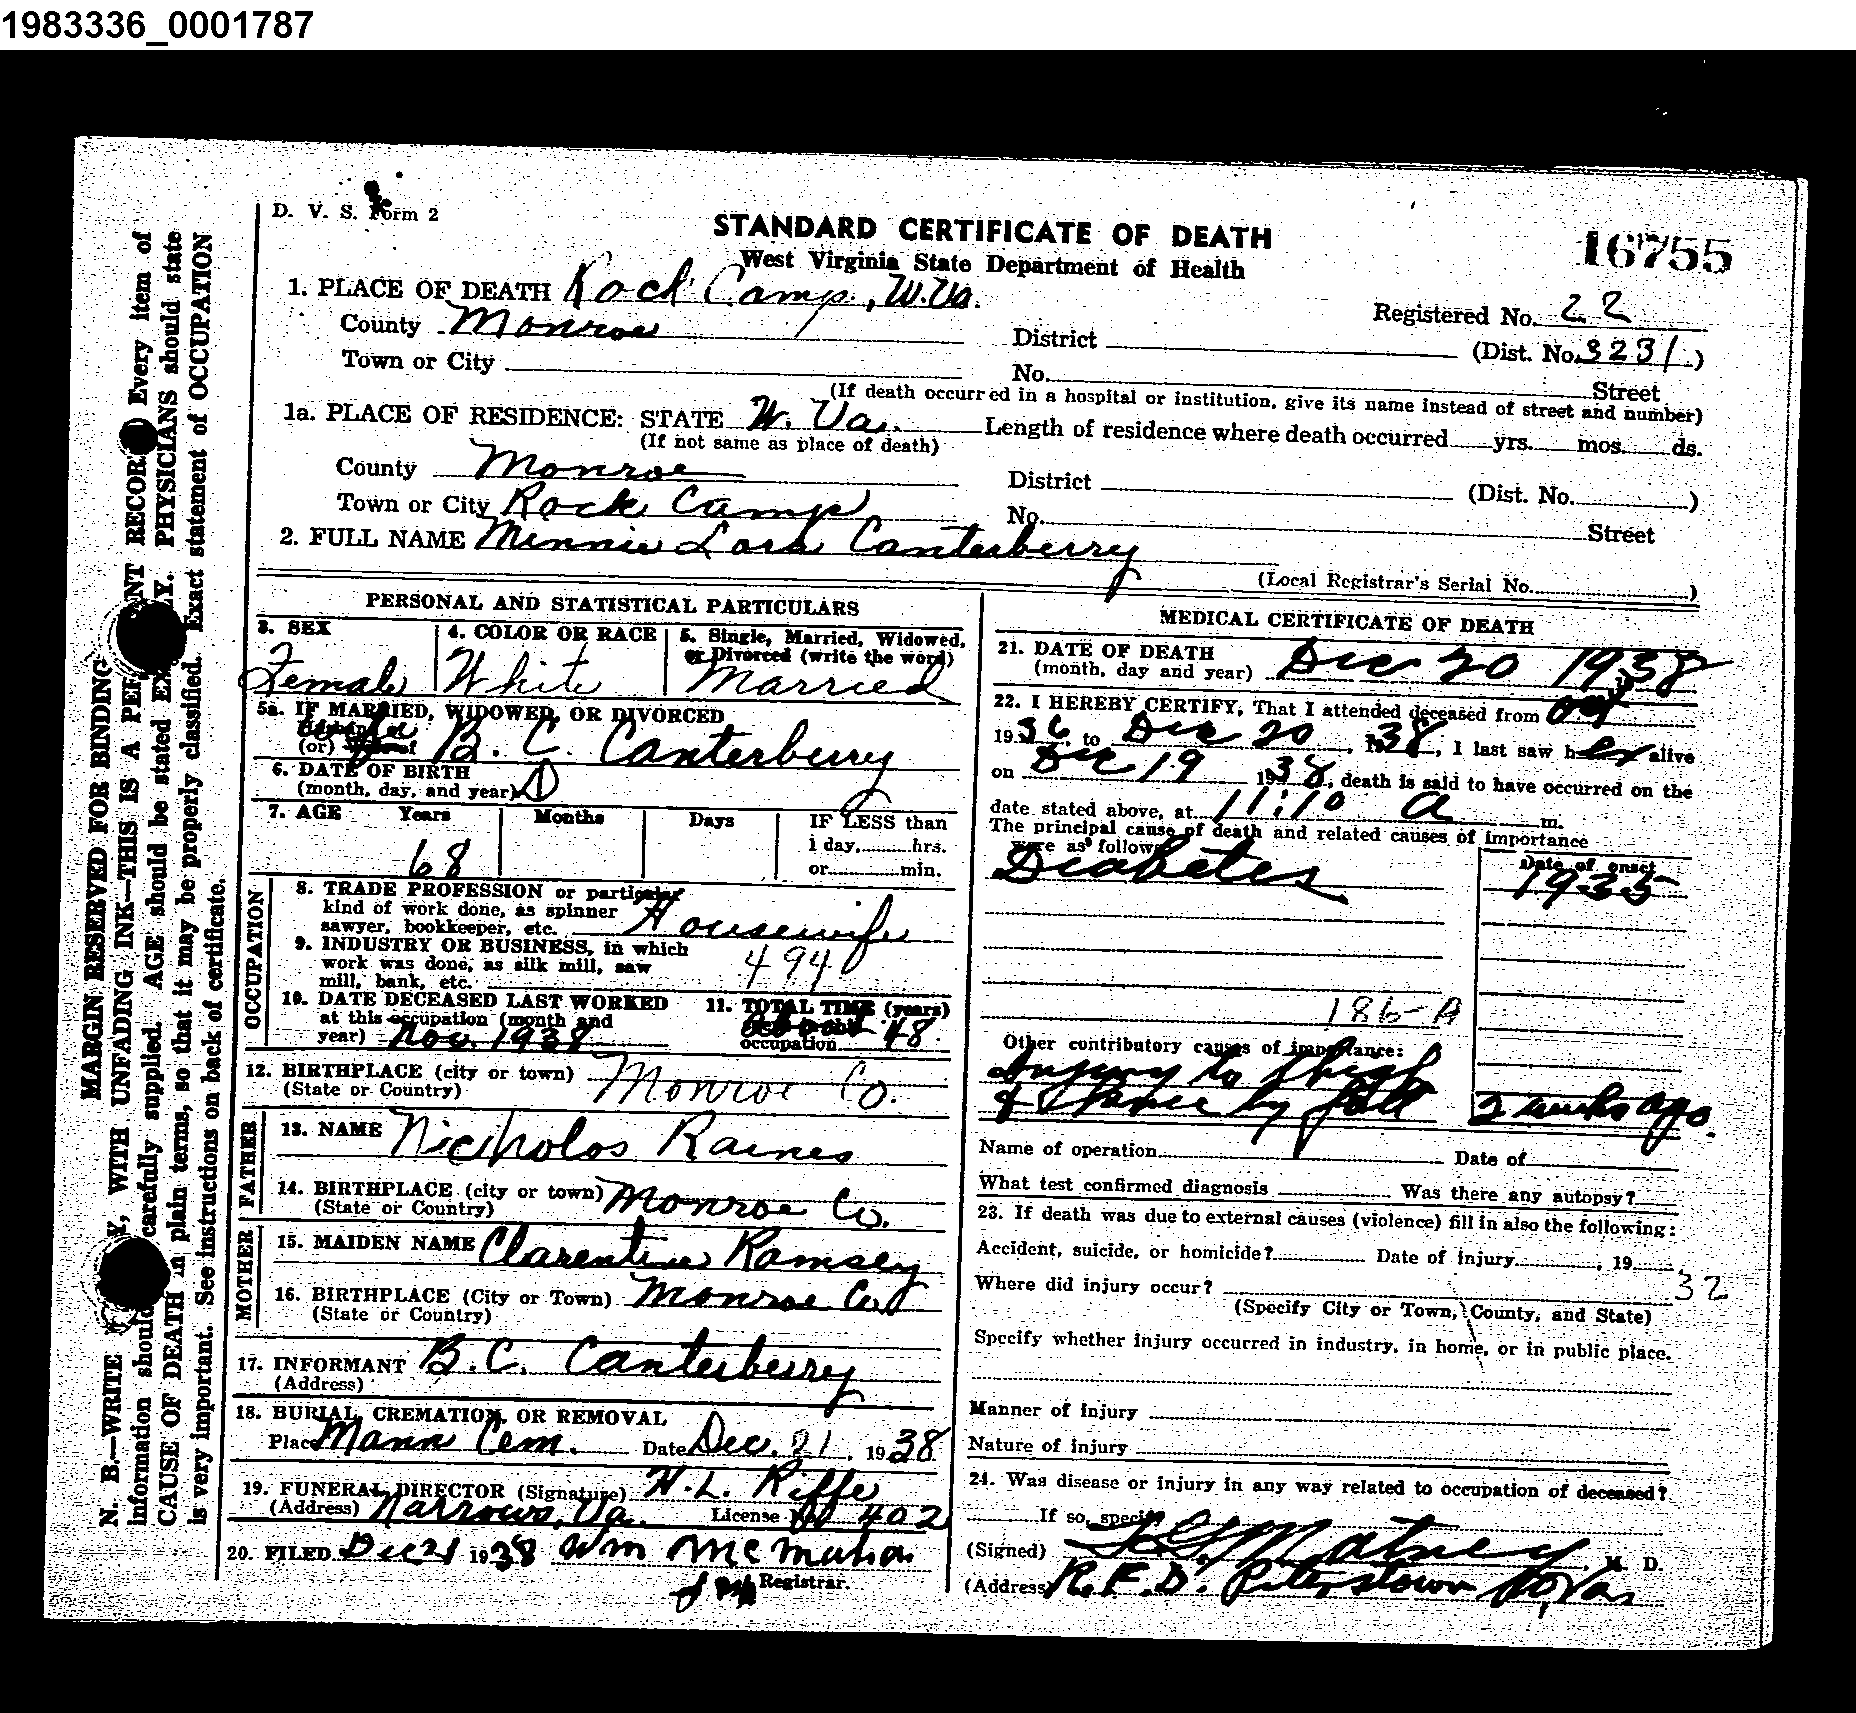 1983336_0001787
D. V. S. Form 2
STANDARD CERTIFICATE OF DEATH
West Virginia State Department of Health
16755
1. PLACE OF DEATH Rock Camp, W. Va.
Registered No. 22
County Monroe
District (Dist. No. 3231)
Town or City
No. Street
(If death occurred in a hospital or institution, give its name instead of street and number)
1a. PLACE OF RESIDENCE: STATE W. Va. Length of residence where death occurred yrs. mos. ds.
(If not same as place of death)
County Monroe
District (Dist. No. )
Town or City Rock Camp
No. Street
2. FULL NAME Minnie Lora Canterberry
(Local Registrar's Serial No. )
PERSONAL AND STATISTICAL PARTICULARS
3. SEX Female
4. COLOR OR RACE White
5. Single, Married, Widowed, or Divorced (write the word) Married
5a. IF MARRIED, WIDOWED, OR DIVORCED
(or) B. C. Canterberry
6. DATE OF BIRTH
(month, day, and year)
7. AGE Years Months Days IF LESS than
1 day, hrs.
68 or min.
OCCUPATION
8. TRADE PROFESSION or particular
kind of work done, as spinner
sawyer, bookkeeper, etc. Housewife
9. INDUSTRY OR BUSINESS, in which
work was done, as silk mill, saw
mill, bank, etc. 494
10. DATE DECEASED LAST WORKED
at this occupation (month and
year) Nov. 1938
11. TOTAL TIME (years)
occupation 48.
12. BIRTHPLACE (city or town) Monroe Co.
(State or Country)
FATHER
13. NAME Nicholos Raines
14. BIRTHPLACE (city or town) Monroe Co.
(State or Country)
MOTHER
15. MAIDEN NAME Clarentine Ramsey
16. BIRTHPLACE (City or Town) Monroe Co
(State or Country)
17. INFORMANT B. C. Canterberry
(Address)
18. BURIAL, CREMATION, OR REMOVAL
Place Mann Cem. Date Dec. 21, 1938
19. FUNERAL DIRECTOR (Signature) H. L. Riffe
(Address) Narrows, Va. License No 402
20. FILED Dec 21 1938 Wm McMahon
Registrar.
MEDICAL CERTIFICATE OF DEATH
21. DATE OF DEATH
(month, day and year) Dec 20 1938
22. I HEREBY CERTIFY, That I attended deceased from Oct
1936 to Dec 20, 1938, I last saw her alive
on Dec 19 1938, death is said to have occurred on the
date stated above, at 11:10 a m.
The principal cause of death and related causes of importance
were as follows
Date of onset
Diabetes 1935
186-A
Other contributory causes of importance:
Injury to thigh
& by fall 2 weeks ago.
Name of operation Date of
What test confirmed diagnosis Was there any autopsy?
23. If death was due to external causes (violence) fill in also the following:
Accident, suicide, or homicide? Date of injury , 19
Where did injury occur? 32
(Specify City or Town, County, and State)
Specify whether injury occurred in industry, in home, or in public place.
Manner of injury
Nature of injury
24. Was disease or injury in any way related to occupation of deceased?
If so, specify
(Signed) Matney, M. D.
(Address) R. F. D. Peterstown W, Va
MARGIN RESERVED FOR BINDING
N. B.—WRITE WITH UNFADING INK—THIS IS A RECORD Every item of
information should carefully supplied. AGE should be stated PHYSICIANS should state
CAUSE OF DEATH in plain terms, so that it may be properly classified. Exact statement of OCCUPATION
is very important. See instructions on back of certificate.